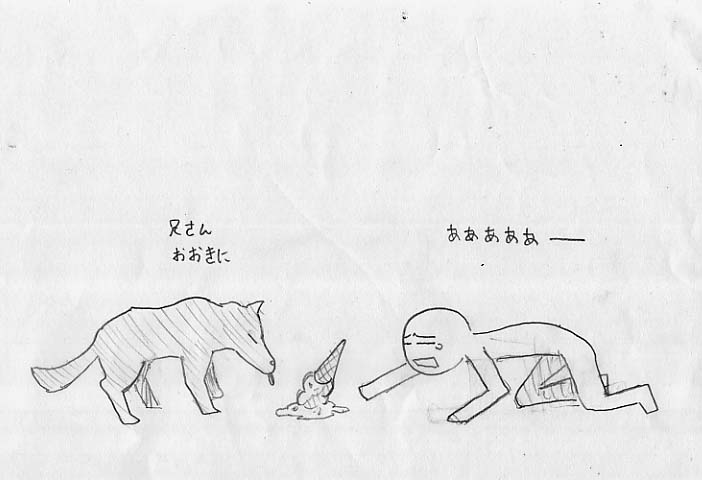 兄さん
おおきに
あああああー